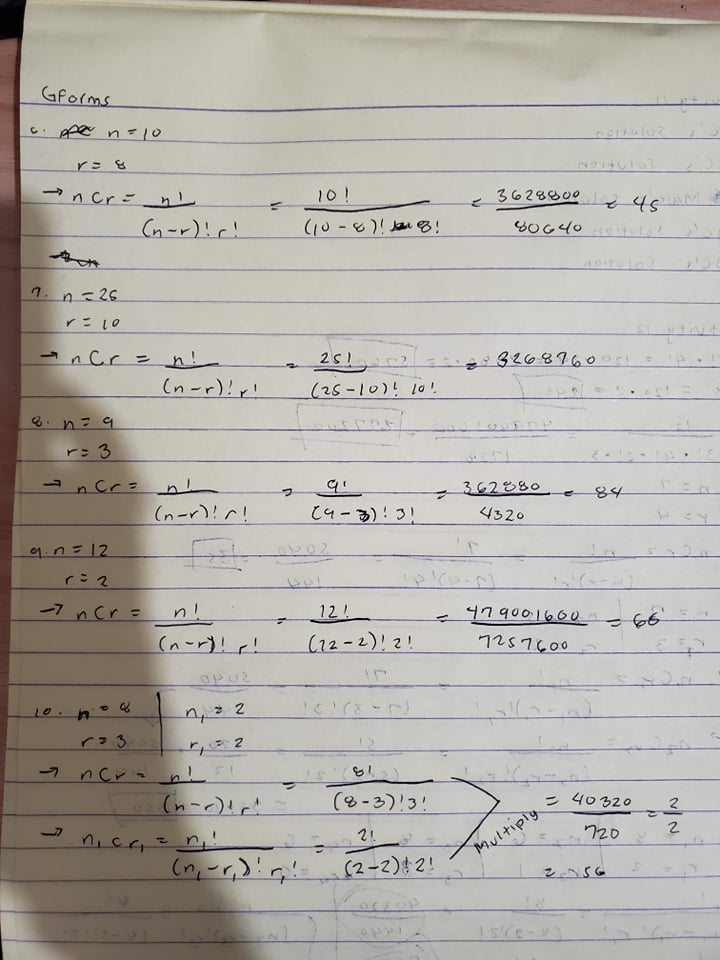 GForms
6. n = 10
r = 8
→ nCr = n! / (n-r)! r! = 10! / (10-8)! 8! = 3628800 / 80640 = 45
7. n = 25
r = 10
→ nCr = n! / (n-r)! r! = 25! / (25-10)! 10! = 3268760
8. n = 9
r = 3
→ nCr = n! / (n-r)! r! = 9! / (9-3)! 3! = 362880 / 4320 = 84
9. n = 12
r = 2
→ nCr = n! / (n-r)! r! = 12! / (12-2)! 2! = 479001600 / 7257600 = 66
10. n = 8 | n₁ = 2
r = 3 | r₁ = 2
→ nCr = n! / (n-r)! r! = 8! / (8-3)! 3!
→ n₁Cr₁ = n₁! / (n₁-r₁)! r₁! = 2! / (2-2)! 2!
Multiply = 40320 / 720 = 2 / 2
= 56